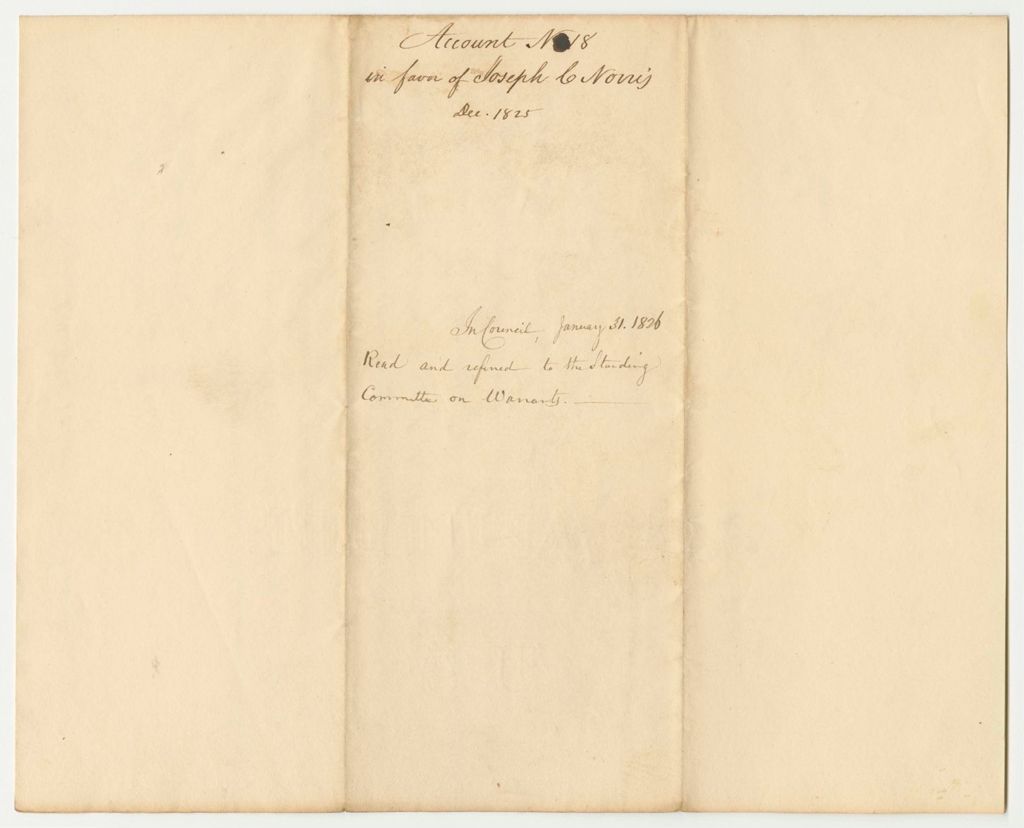 Account No 18
in favor of Joseph C Norris
Dec. 1825
In Council, January 31. 1826
Read and referred to the Standing
Committee on Warrants.